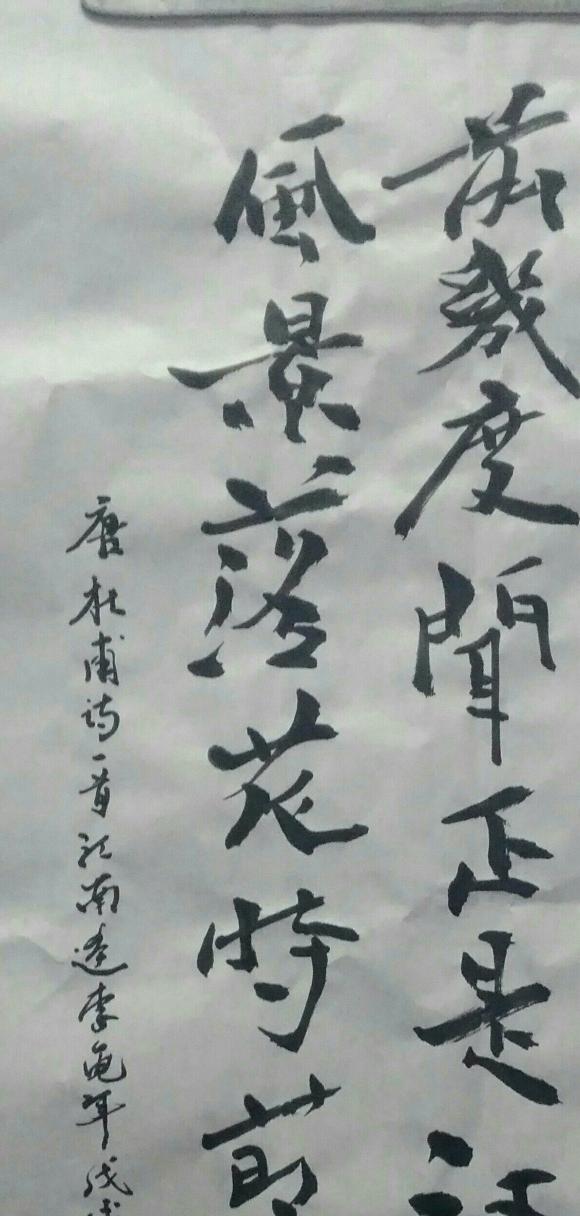 前幾度聞正是江
風景落花時節
唐杜甫诗一首江南逢李龟年戊戌